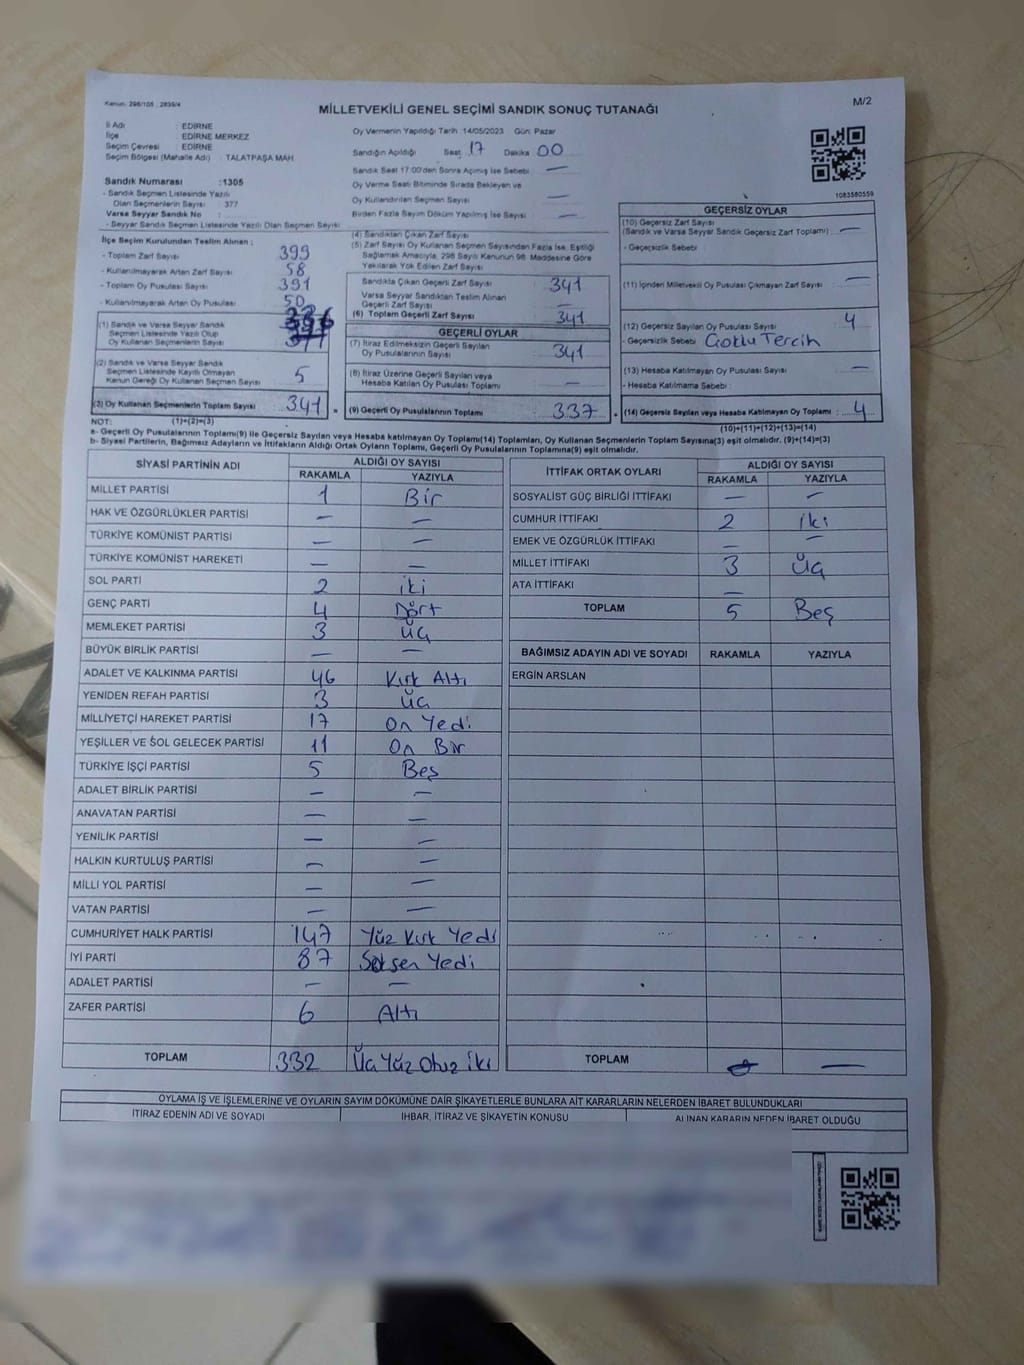 Kanun: 298/105 , 2839/4
MİLLETVEKİLİ GENEL SEÇİMİ SANDIK SONUÇ TUTANAĞI
M/2
İl Adı : EDİRNE
İlçe : EDİRNE MERKEZ
Seçim Çevresi : EDİRNE
Seçim Bölgesi (Mahalle Adı) : TALATPAŞA MAH
Sandık Numarası :1305
- Sandık Seçmen Listesinde Yazılı
Olan Seçmenlerin Sayısı : 377
Varsa Seyyar Sandık No :
- Seyyar Sandık Seçmen Listesinde Yazılı Olan Seçmen Sayısı
İlçe Seçim Kurulundan Teslim Alınan ;
- Toplam Zarf Sayısı 399
- Kullanılmayarak Artan Zarf Sayısı 58
- Toplam Oy Pusulası 391
- Kullanılmayarak Artan Oy Pusulası 50
(1) Sandık ve Varsa Seyyar Sandık
Seçmen Listesinde Yazılı Olup
Oy Kullanan Seçmenlerin Sayısı
(2) Sandık ve Varsa Seyyar Sandık
Seçmen Listesinde Kayıtlı Olmayan
Kanun Gereği Oy Kullanan Seçmen Sayısı 5
(3) Oy Kullanan Seçmenlerin Toplam Sayısı 341
Oy Vermenin Yapıldığı Tarih 14/05/2023 Gün: Pazar
Sandığın Açıldığı Saat 17 Dakika 00
Sandık Saat 17.00'den Sonra Açılmış İse Sebebi —
Oy Verme Saati Bitiminde Sırada Bekleyen ve
Oy Kullandırılan Seçmen Sayısı —
Birden Fazla Sayım Döküm Yapılmış İse Sayısı —
(4) Sandıktan Çıkan Zarf Sayısı
(5) Zarf Sayısı Oy Kullanan Seçmen Sayısından Fazla İse, Eşitliği
Sağlamak Amacıyla, 298 Sayılı Kanunun 98. Maddesine Göre
Yakılarak Yok Edilen Zarf Sayısı
Sandıkta Çıkan Geçerli Zarf Sayısı 341
Varsa Seyyar Sandıktan Teslim Alınan
Geçerli Zarf Sayısı —
(6) Toplam Geçerli Zarf Sayısı 341
GEÇERLİ OYLAR
(7) İtiraz Edilmeksizin Geçerli Sayılan
Oy Pusulalarının Sayısı 341
(8) İtiraz Üzerine Geçerli Sayılan veya
Hesaba Katılan Oy Pusulası Toplamı —
(9) Geçerli Oy Pusulalarının Toplamı 337
1083580559
GEÇERSİZ OYLAR
(10) Geçersiz Zarf Sayısı
(Sandık ve Varsa Seyyar Sandık Geçersiz Zarf Toplamı) : —
- Geçersizlik Sebebi :
(11) İçinden Milletvekili Oy Pusulası Çıkmayan Zarf Sayısı —
(12) Geçersiz Sayılan Oy Pusulası Sayısı 4
- Geçersizlik Sebebi Çoklu Tercih
(13) Hesaba Katılmayan Oy Pusulası Sayısı —
- Hesaba Katılmama Sebebi :
(14) Geçersiz Sayılan veya Hesaba Katılmayan Oy Toplamı : 4
NOT: (1)+(2)=(3) (10)+(11)+(12)+(13)=(14)
a- Geçerli Oy Pusulalarının Toplamı(9) ile Geçersiz Sayılan veya Hesaba katılmayan Oy Toplamı(14) Toplamları, Oy Kullanan Seçmenlerin Toplam Sayısına(3) eşit olmalıdır. (9)+(14)=(3)
b- Siyasi Partilerin, Bağımsız Adayların ve İttifakların Aldığı Ortak Oyların Toplamı, Geçerli Oy Pusulalarının Toplamına(9) eşit olmalıdır.
SİYASİ PARTİNİN ADI ALDIĞI OY SAYISI
RAKAMLA YAZIYLA
MİLLET PARTİSİ 1 Bir
HAK VE ÖZGÜRLÜKLER PARTİSİ — —
TÜRKİYE KOMÜNİST PARTİSİ — —
TÜRKİYE KOMÜNİST HAREKETİ — —
SOL PARTİ 2 iki
GENÇ PARTİ 4 Dört
MEMLEKET PARTİSİ 3 üç
BÜYÜK BİRLİK PARTİSİ — —
ADALET VE KALKINMA PARTİSİ 46 Kırk Altı
YENİDEN REFAH PARTİSİ 3 üç
MİLLİYETÇİ HAREKET PARTİSİ 17 On Yedi
YEŞİLLER VE SOL GELECEK PARTİSİ 11 On Bir
TÜRKİYE İŞÇİ PARTİSİ 5 Beş
ADALET BİRLİK PARTİSİ — —
ANAVATAN PARTİSİ — —
YENİLİK PARTİSİ — —
HALKIN KURTULUŞ PARTİSİ — —
MİLLİ YOL PARTİSİ — —
VATAN PARTİSİ — —
CUMHURİYET HALK PARTİSİ 147 Yüz Kırk Yedi
İYİ PARTİ 87 Seksen Yedi
ADALET PARTİSİ — —
ZAFER PARTİSİ 6 Altı
TOPLAM 332 Üç Yüz Otuz iki
İTTİFAK ORTAK OYLARI ALDIĞI OY SAYISI
RAKAMLA YAZIYLA
SOSYALİST GÜÇ BİRLİĞİ İTTİFAKI — —
CUMHUR İTTİFAKI 2 iki
EMEK VE ÖZGÜRLÜK İTTİFAKI — —
MİLLET İTTİFAKI 3 üç
ATA İTTİFAKI —
TOPLAM 5 Beş
BAĞIMSIZ ADAYIN ADI VE SOYADI RAKAMLA YAZIYLA
ERGİN ARSLAN
TOPLAM —
OYLAMA İŞ VE İŞLEMLERİNE VE OYLARIN SAYIM DÖKÜMÜNE DAİR ŞİKAYETLERLE BUNLARA AİT KARARLARIN NELERDEN İBARET BULUNDUKLARI
İTİRAZ EDENİN ADI VE SOYADI İHBAR, İTİRAZ VE ŞİKAYETİN KONUSU ALINAN KARARIN NEDEN İBARET OLDUĞU